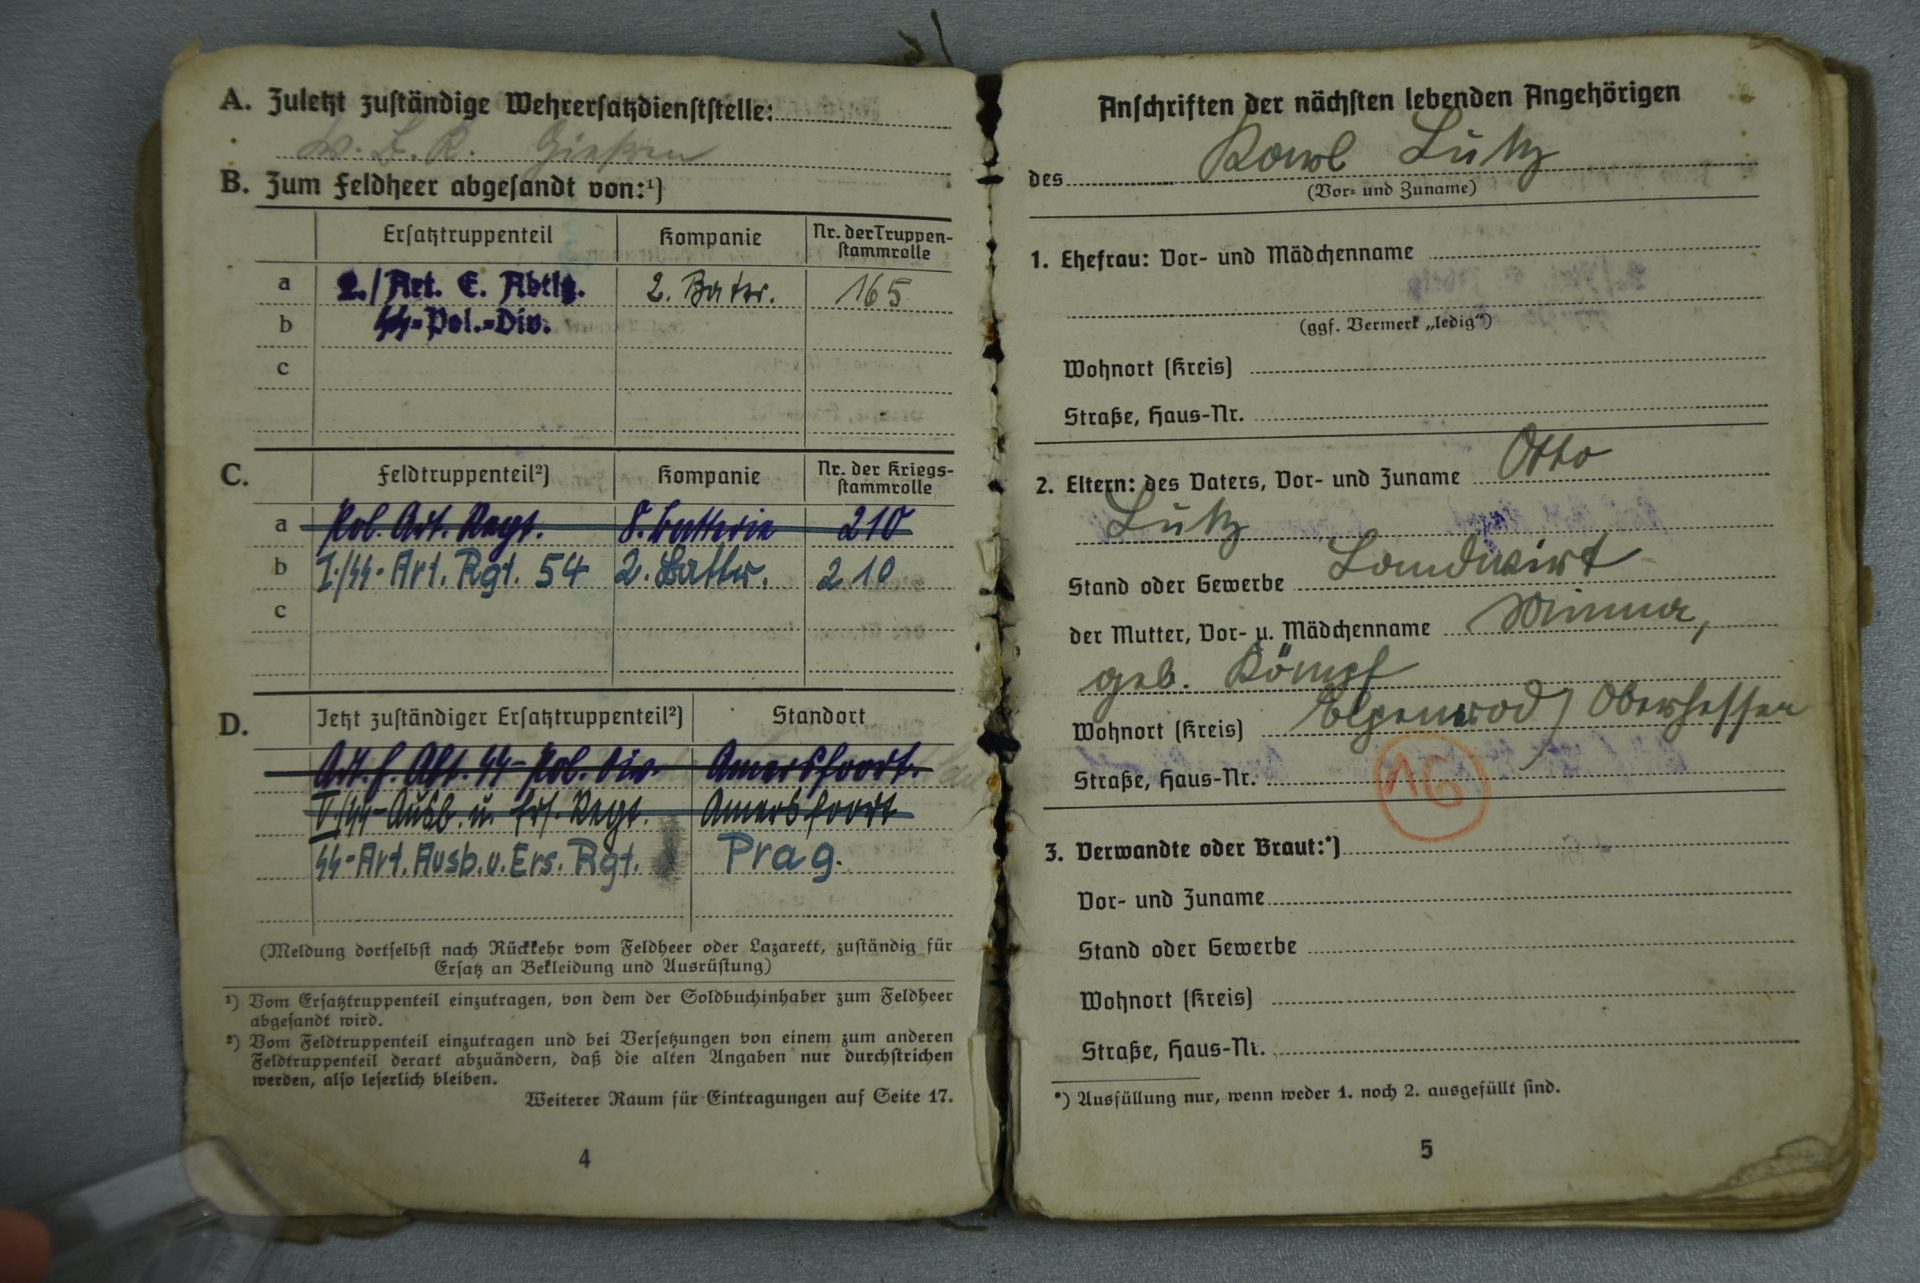 A. Zuletzt zuständige Wehrersatzdienststelle:
W. B. K. Gießen
B. Zum Feldheer abgesandt von:¹)
Ersatztruppenteil Kompanie Nr. der Truppen-
stammrolle
a 2./Art. E. Abtlg. 2. Batter. 165
b SS=Pol.=Div.
c
C. Feldtruppenteil²) Kompanie Nr. der Kriegs-
stammrolle
a Pol. Art. Regt. 8. Batterie 210
b I./SS-Art. Rgt. 54 2. Battr. 210
c
D. Jetzt zuständiger Ersatztruppenteil²) Standort
Art. E. Abt. SS-Pol. Div. Amersfoort.
V./SS-Ausb. u. Ers. Regt. Amersfoort
SS-Art. Ausb. u. Ers. Rgt. Prag.
(Meldung dortselbst nach Rückkehr vom Feldheer oder Lazarett, zuständig für
Ersatz an Bekleidung und Ausrüstung)
¹) Vom Ersatztruppenteil einzutragen, von dem der Soldbuchinhaber zum Feldheer
abgesandt wird.
²) Vom Feldtruppenteil einzutragen und bei Versetzungen von einem zum anderen
Feldtruppenteil derart abzuändern, daß die alten Angaben nur durchstrichen
werden, also leserlich bleiben.
Weiterer Raum für Eintragungen auf Seite 17.
4
Anschriften der nächsten lebenden Angehörigen
des Karl Lutz
(Vor- und Zuname)
1. Ehefrau: Vor- und Mädchenname
(ggf. Vermerk „ledig“)
Wohnort (Kreis)
Straße, Haus-Nr.
2. Eltern: des Vaters, Vor- und Zuname Otto
Lutz
Stand oder Gewerbe Landwirt
der Mutter, Vor- u. Mädchenname Minna,
geb. Kömpf
Wohnort (Kreis) Elpenrod / Oberhessen
Straße, Haus-Nr.
16
3. Verwandte oder Braut:*)
Vor- und Zuname
Stand oder Gewerbe
Wohnort (Kreis)
Straße, Haus-Nr.
*) Ausfüllung nur, wenn weder 1. noch 2. ausgefüllt sind.
5